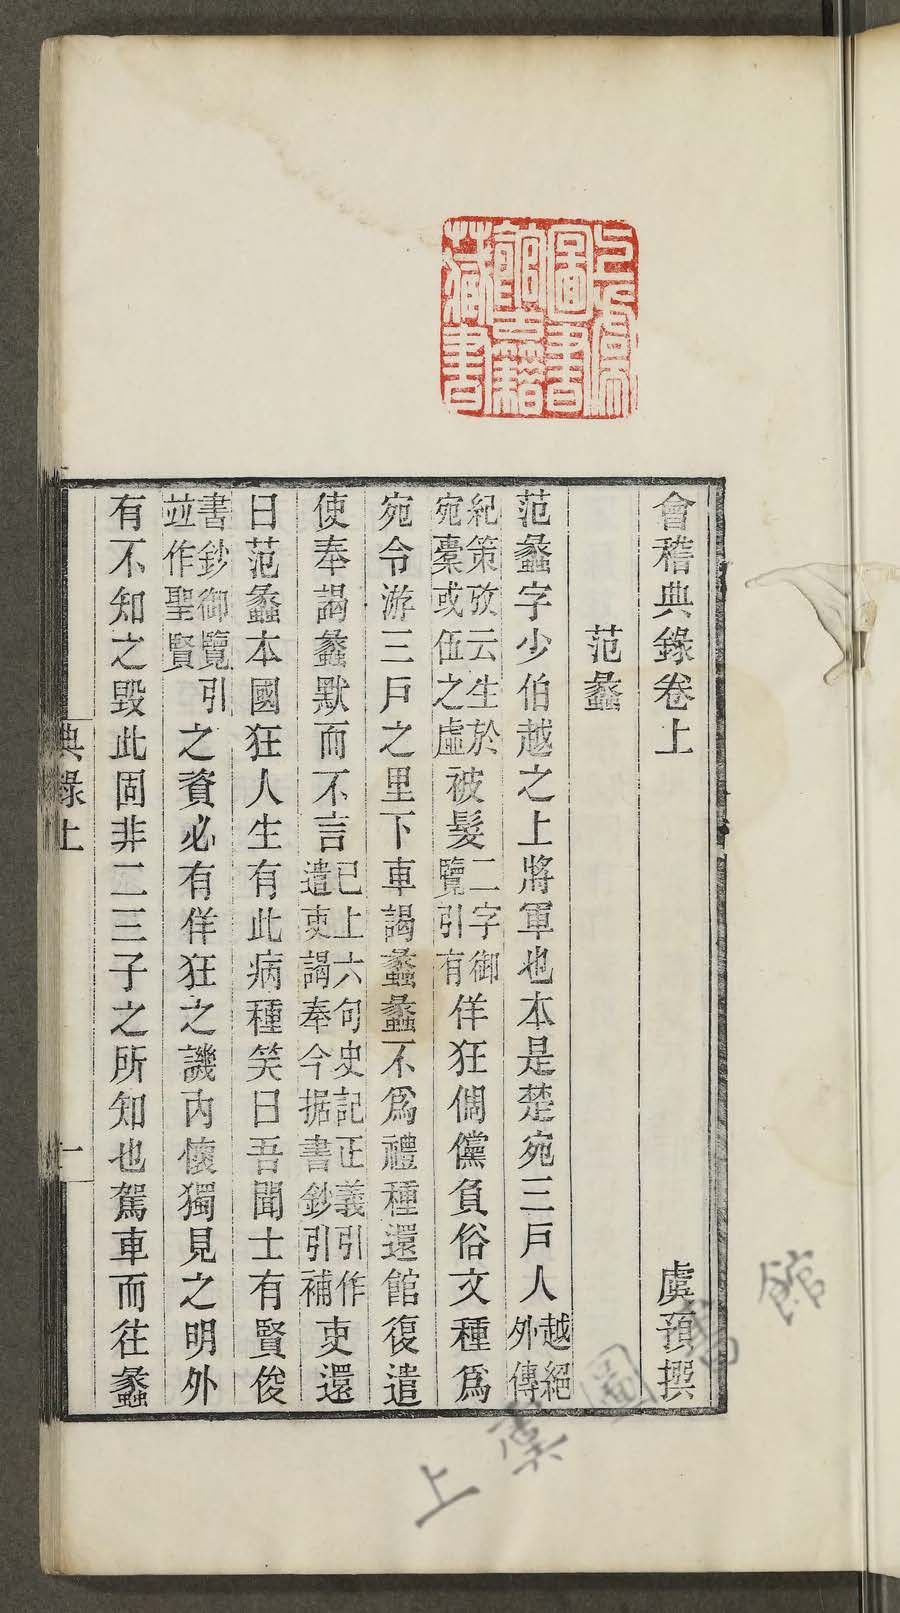 會稽典錄卷上 虞預撰
范蠡
范蠡字少伯越之上將軍也本是楚宛三戶人越絕外傳
紀策攷云生於宛橐或伍之虛被髮二字御覽引有佯狂倜儻負俗文種爲
宛令游三戶之里下車謁蠡蠡不爲禮種還館復遣
使奉謁蠡默而不言已上六句史記正義引作遣吏謁奉今据書鈔引補吏還
曰范蠡本國狂人生有此病種笑曰吾聞士有賢俊
書鈔御覽引並作聖賢之資必有佯狂之譏內懷獨見之明外
有不知之毀此固非二三子之所知也駕車而往蠡
典錄上 一
上虞圖書館古籍藏書
上虞圖書館